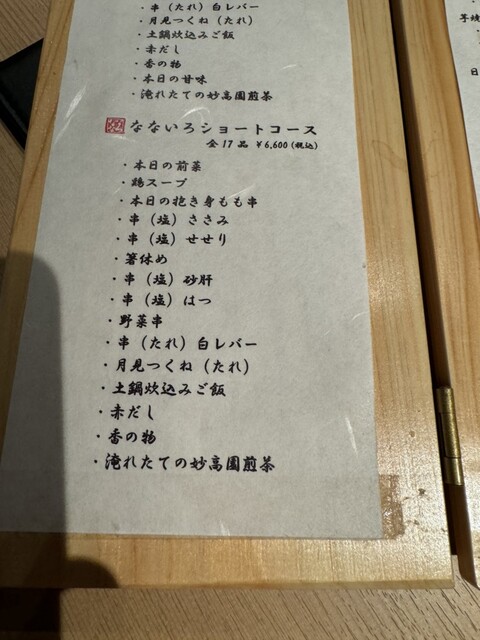 ・串（たれ）白レバー
・月見つくね（たれ）
・土鍋炊込みご飯
・赤だし
・香の物
・本日の甘味
・淹れたての妙高園煎茶
なないろショートコース
全17品 ¥6,600（税込）
・本日の前菜
・鶏スープ
・本日の抱き身もも串
・串（塩）ささみ
・串（塩）せせり
・箸休め
・串（塩）砂肝
・串（塩）はつ
・野菜串
・串（たれ）白レバー
・月見つくね（たれ）
・土鍋炊込みご飯
・赤だし
・香の物
・淹れたての妙高園煎茶